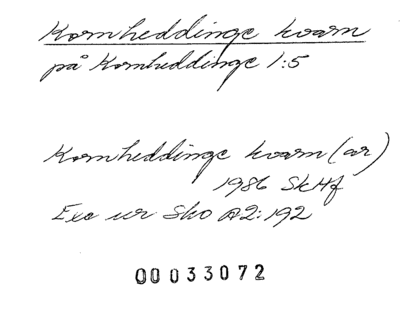 Kornheddinge kvarn
på Kornheddinge 1:5
Kornheddinge kvarn (ar)
1986 SkHf
Exc ur Sko A2:192
00033072